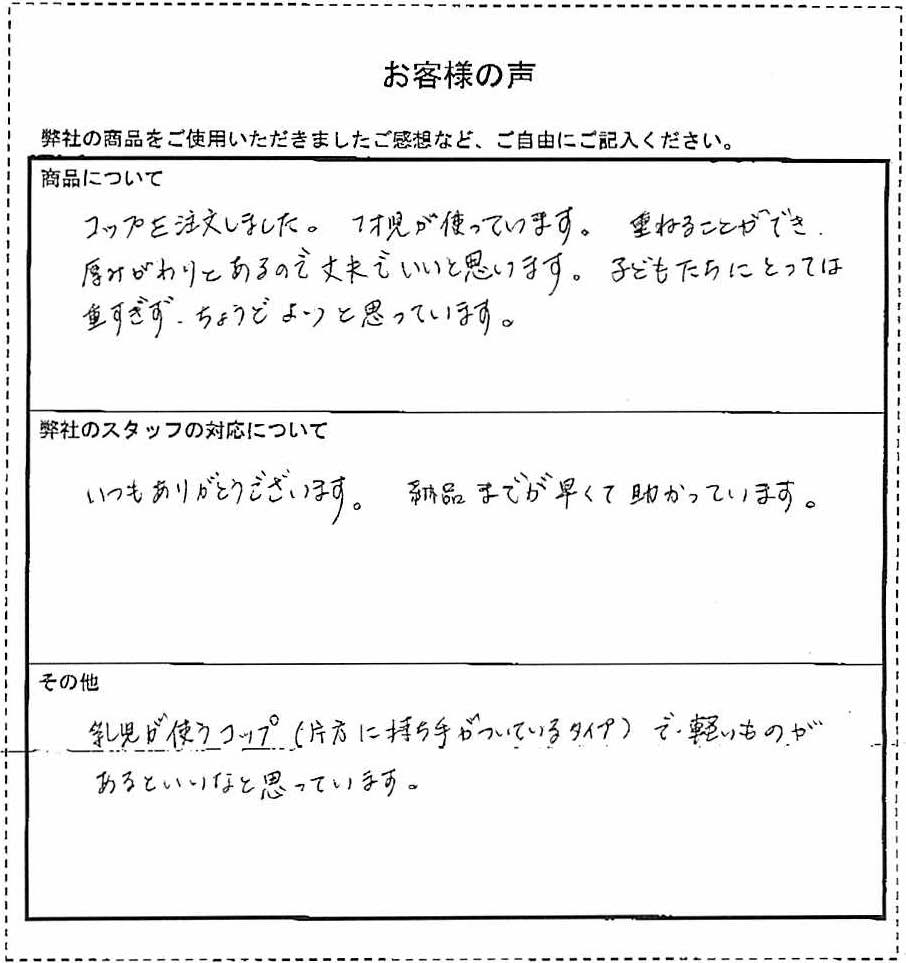 お客様の声
弊社の商品をご使用いただきましたご感想など、ご自由にご記入ください。
商品について
コップを注文しました。 1才児が使っています。 重ねることができ、
厚みがわりとあるので丈夫でいいと思います。 子どもたちにとっては
重すぎず、ちょうどよいと思っています。
弊社のスタッフの対応について
いつもありがとうございます。 納品までが早くて助かっています。
その他
乳児が使うコップ(片方に持ち手がついているタイプ)で、軽いものが
あるといいなと思っています。